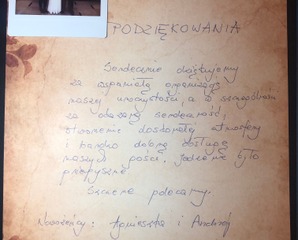 PODZIĘKOWANIA
Serdecznie dziękujemy
za wspaniałą organizację
naszej uroczystości, a w szczególności
za okazaną serdeczność,
stworzenie doskonałej atmosfery
i bardzo dobrą obsługę
naszych gości. Jedzenie było
przepyszne.
Szczerze polecamy.
Nowożeńcy: Agnieszka i Andrzej